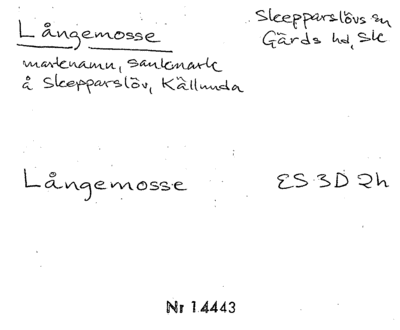 Långemosse
Skepparslövs sn
Gärds hd, Sk
marknamn, sankmark
å Skepparslöv, Källunda
Långemosse
ES 3D 2h
Nr 14443